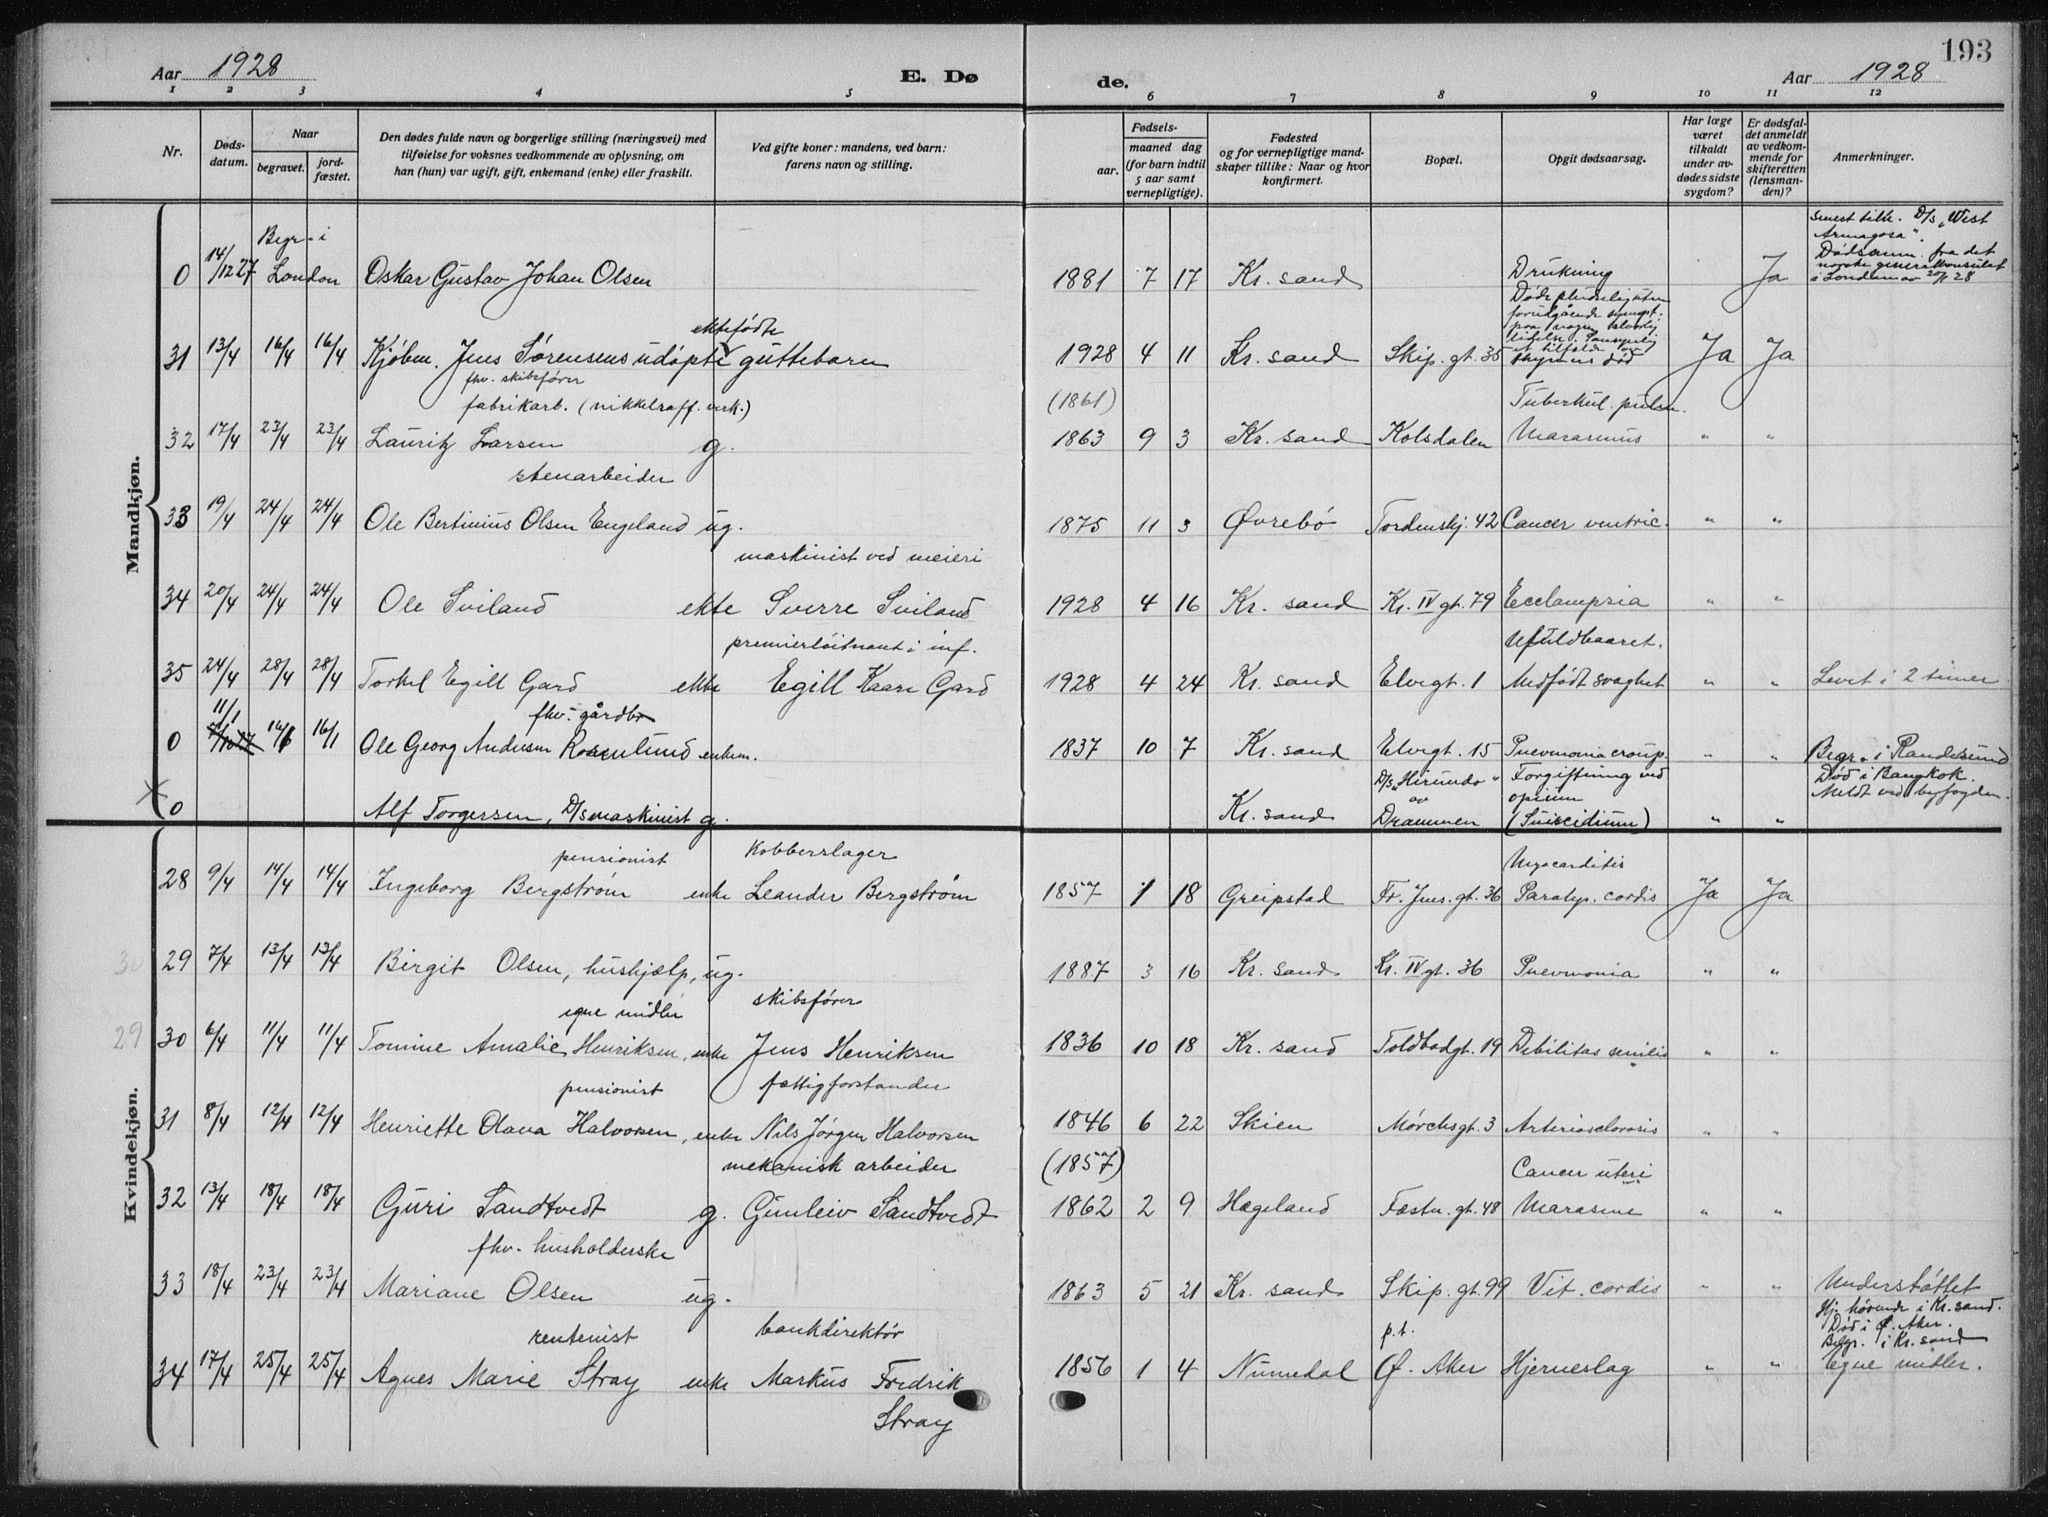 193
Aar 1928 E. Dø de. Aar 1928
1 2 3 4 5 6 7 8 9 10 11 12
Nr. Døds-datum. Naar begravet. jord-fæstet. Den dødes fulde navn og borgerlige stilling (næringsvei) med tilføielse for voksnes vedkommende av oplysning, om han (hun) var ugift, gift, enkemand (enke) eller fraskilt. Ved gifte koner: mandens, ved barn: farens navn og stilling. Fødsels- aar. maaned dag (for barn indtil 5 aar samt vernepligtige). Fødested og for vernepligtige mand-skaper tillike: Naar og hvor konfirmert. Bopæl. Opgit dødsaarsag. Har læge været tilkaldt under av-dødes sidste sygdom? Er dødsfal-det anmeldt av vedkom-mende for skifteretten (lensman-den)? Anmerkninger.
Mandkjøn.
0 14/12 27 Begr. i London Oskar Gustav Johan Olsen 1881 7 17 Kr. sand Drukning Ja Senest tilh. D/s „West Armagosa". Dødsanm. fra det norske generalkonsulat i London av 20/1 28
31 13/4 16/4 16/4 Kjøbm. Jens Sørensens udøpte ektefødte guttebarn 1928 4 11 Kr. sand Skip. gt. 35 Døde pludselig uten forudgående thymus død Ja Ja
fhv. skibsfører
fabrikarb. (nikkelraff. verk.) (1861) Tuberkul. pulm.
32 17/4 23/4 23/4 Lauritz Larsen g. 1863 9 3 Kr. sand Kolsdalen Marasmus " "
stenarbeider
33 19/4 24/4 24/4 Ole Bertinius Olsen Engeland ug. 1875 11 3 Øvrebö Tordenskj. 42 Cancer ventric. " "
maskinist ved meieri
34 20/4 24/4 24/4 Ole Sviland ekte Sverre Sviland 1928 4 16 Kr. sand Kr. IV gt. 79 Ecclampsia " "
premierløitnant i inf. Ufuldbaaret.
35 24/4 28/4 28/4 Torkel Egill Gard ekte Egill Kaare Gard 1928 4 24 Kr. sand Elvegt. 1 Medfødt svaghet " " Levet i 2 timer
fhv. gårdbr
0 11/1 16/1 16/1 Ole Georg Andersen Rosenlund enkem. 1837 10 7 Kr. sand Elvegt. 15 Pneumonia croup. " " Begr. i Randesund
0 Alf Torgersen, D/s maskinist g. Kr. sand D/s „Hirundo" av Drammen Forgiftning ved opium (Suiscidium) " " Død i Bangkok. Meldt ved byfogden.
Kvindekjøn.
pensionist Kobberslager Myocarditis
28 9/4 14/4 14/4 Ingeborg Bergstrøm enke Leander Bergstrøm 1857 1 18 Greipstad Fr. Jens. gt. 36 Paralys. cordis Ja Ja
29 7/4 13/4 13/4 Birgit Olsen, hushjælp, ug. 1887 3 16 Kr. sand Kr. IV gt. 36 Pneumonia " "
egne midler skibsfører
29 30 6/4 11/4 11/4 Tomine Amalie Henriksen, enke Jens Henriksen 1836 10 18 Kr. sand Toldbodgt. 19 Debilitas senilis " "
pensionist fattigforstander
31 8/4 12/4 12/4 Henriette Olava Halvorsen, enke Nils Jørgen Halvorsen 1846 6 22 Skien Mørchsgt. 3 Arteriosclorosis " "
mekanisk arbeider (1857) Cancer uteri
32 13/4 18/4 18/4 Guri Sandtvedt g. Gunleiv Sandtvedt 1862 2 9 Hægeland Fæstn. gt. 48 Marasme " "
fhv. husholderske
33 18/4 23/4 23/4 Mariane Olsen ug. 1863 5 21 Kr. sand Skip. gt. 99 Vit. cordis " " Understøttet
rentenist bankdirektør p.t. Hj. hørende i Kr. sand. Død i Ø. Aker. Begr. i Kr. sand
34 17/4 25/4 25/4 Agnes Marie Stray enke Markus Fredrik Stray 1856 1 4 Numedal Ø. Aker Hjerneslag " " Egne midler.